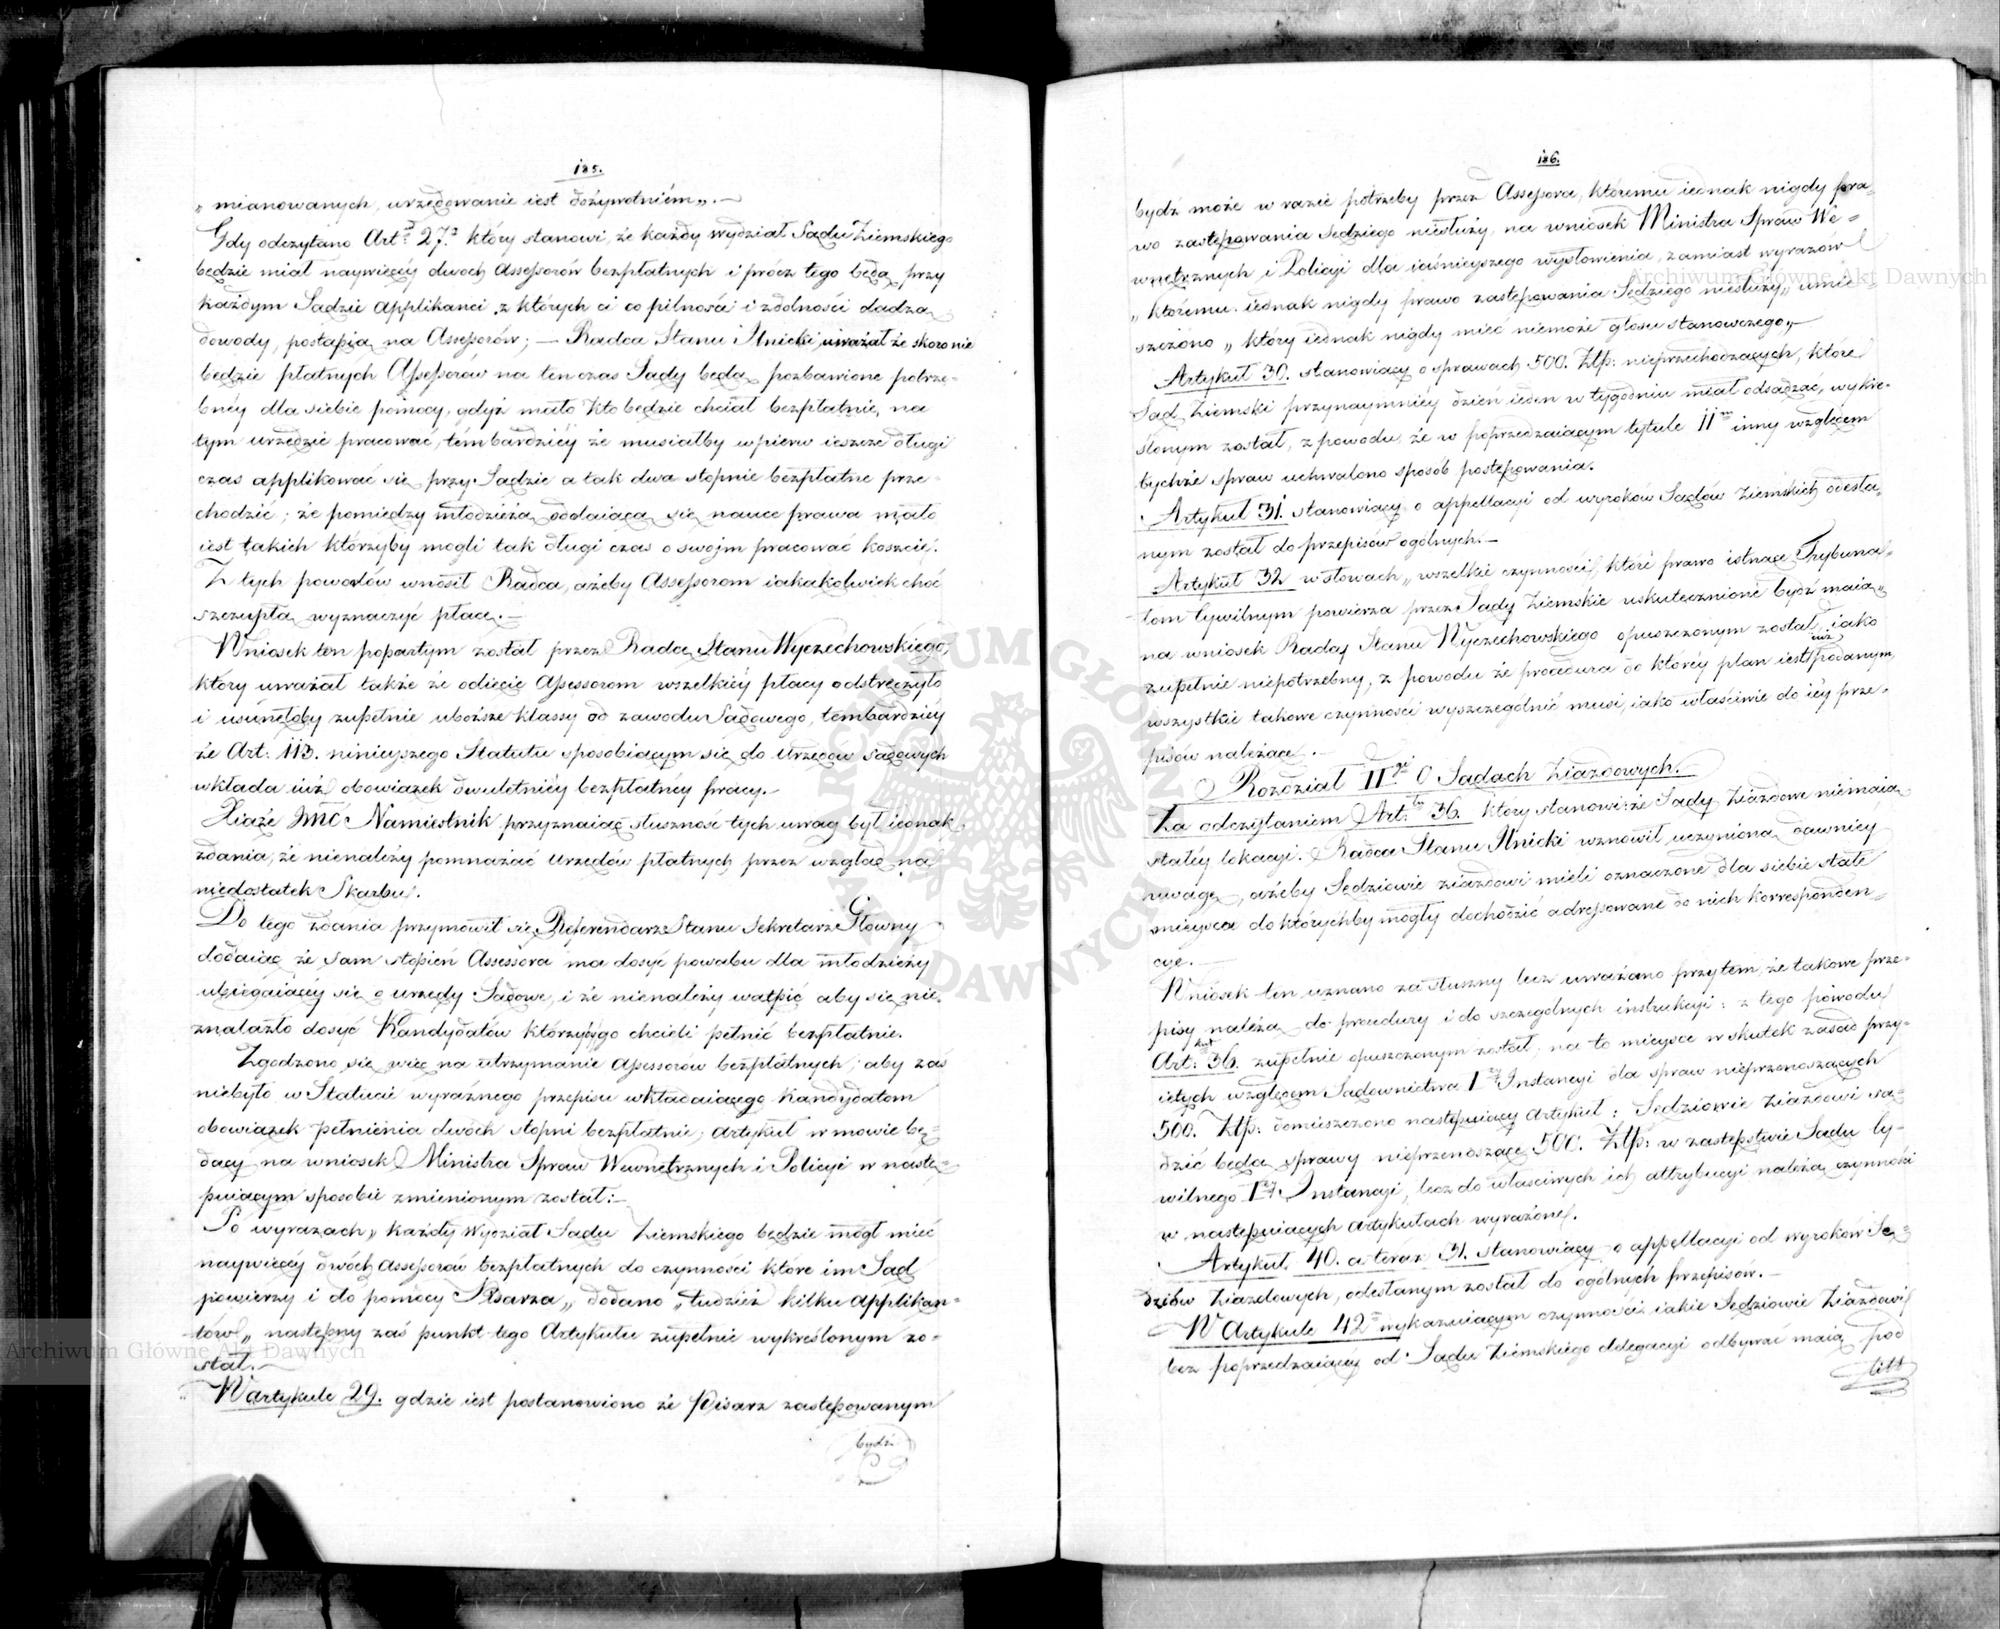 185.
„mianowanych, urzędowanie iest dożywotniém„. —
Gdy odczytano Art. 27. który stanowi, że każdy wydział Sądu Ziemskiego
będzie miał naywięcéy dwóch Assessorów bezpłatnych i prócz tego będą przy
każdym Sądzie Applikanci, z których ci co pilności i zdolności dadzą
dowody, postąpią na Assessorów; — Radca Stanu Ilnicki, uważał że skoro nie
będzie płatnych Assessorów na ten czas Sądy będą pozbawione potrze-
bnéy dla siebie pomocy, gdyż mało kto będzie chciał bezpłatnie, na
tym urzędzie pracować, témbardziéy że musiałby wpierw ieszcze długi
czas applikować się przy Sądzie a tak dwa stopnie bezpłatne prze-
chodzić; że pomiędzy młodzieżą oddaiącą się nauce prawa mało
iest takich którzyby mogli tak długi czas o swoim pracować koszcie.
Z tych powodów wnosił Radca, ażeby Assessorom iakąkolwiek choć
szczupłą wyznaczyć płacę. —
Wniosek ten popartym został przez Radcę Stanu Wyczechowskiego,
który uważał także że odięcie Assessorom wszelkiéy płacy odstręczyło
i usunęłoby zupełnie uboższe klassy od zawodu Sądowego, tembardziéy
że Art: 113. ninieyszego Statutu sposobiącym się do Urzędów Sądowych
wkłada iuż obowiązek dwuletniéy bezpłatnéy pracy. —
Xiąże JMC Namiestnik przyznaiąc słuszność tych uwag był iednak
zdania, że nienależy pomnażać urzędów płatnych przez wzgląd na
niedostatek Skarbu.
Do tego zdania przymówił się Referendarz Stanu Sekretarz Główny
dodaiąc że sam stopień Assessora ma dosyć powabu dla młodzieży
ubiegaiącéy się o urzędy Sądowe, i że nienależy wątpić aby się nie-
znalazło dosyć Kandydatów którzyby go chcieli pełnić bezpłatnie.
Zgodzono się więc na utrzymanie Assessorów bezpłatnych; aby zaś
niebyło w Statucie wyraźnego przepisu wkładaiącego Kandydatom
obowiązek pełnienia dwóch stopni bezpłatnie, Artykuł w mowie bę-
dący na wniosek Ministra Spraw Wewnętrznych i Policyi w nastę-
puiącym sposobie zmienionym został: —
Po wyrazach „każdy Wydział Sądu Ziemskiego będzie mógł mieć
naywięcéy dwóch Assessorów bezpłatnych do czynności które im Sąd
powierzy i do pomocy Pisarza„ dodano „tudzież kilku Applikan-
tów„ następny zaś punkt tego Artykułu zupełnie wykreślonym zo-
stał. —
W artykule 29. gdzie iest postanowiono że Pisarz zastępowanym
bydź
186.
bydź może w razie potrzeby przez Assessora, któremu iednak nigdy pra-
wo zastępowania Sędziego niesłuży, na wniosek Ministra Spraw We-
wnętrznych i Policyi dla iaśnieyszego wysłowienia, zamiast wyrazów
„któremu iednak nigdy prawo zastępowania Sędziego niesłuży„ umie-
szczono „który iednak nigdy mieć niemoże głosu stanowczego„ —
Artykuł 30. stanowiący o sprawach 500. Złp: nieprzechodzących, które
Sąd Ziemski przynaymniéy dzień ieden w tygodniu miał odsądzać, wykre-
ślonym został, z powodu, że w poprzedzaiącym tytule IIm inny względem
tychże spraw uchwalono sposób postępowania.
Artykuł 31. stanowiący o appellacyi od wyroków Sądów Ziemskich odesła-
nym został do przepisów ogólnych. —
Artykuł 32 w słowach „wszelkie czynności, które prawo istnące Trybuna-
łom Cywilnym powierza przez Sądy Ziemskie uskutecznione bydź maią„
na wniosek Radcy Stanu Wyczechowskiego opuszczonym został, iako
zupełnie niepotrzebny, z powodu że procedura do któréy plan iest iuż podanym,
wszystkie takowe czynności wyszczególnić musi, iako właściwie do iéy prze-
pisów należące. —
Rozdział IIgi O Sądach Ziazdowych.
Za odczytaniem Art. 36. który stanowi: że Sądy Ziazdowe niemaią
stałéy lokacyi. Radca Stanu Ilnicki wznowił uczynioną dawniéy
uwagę, ażeby Sędziowie ziazdowi mieli oznaczone dla siebie stałe
mieysca do którychby mogły dochodzić adressowane do nich korresponden-
cye. —
Wniosek ten uznano za słuszny lecz uważano przytém, że takowe prze-
pisy należą do procedury i do szczególnych instrukcyi: z tego powodu
Art: 36. zupełnie opuszczonym został, na to mieysce w skutek zasad przy-
iętych względem Sądownictwa Iéy Instancyi dla spraw nieprzenoszących
500. Złp: domieszczono następuiący Artykuł: Sędziowie Ziazdowi są-
dzić będą sprawy nieprzenoszące 500. Złp: w zastępstwie Sądu Cy-
wilnego Iéy Instancyi, lecz do właściwych ich attrybucyi należą czynności
w następuiących Artykułach wyrażone.
Artykuł 40. a teraz 31. stanowiący o appellacyi od wyroków Sę-
dziów Ziazdowych, odesłanym został do ogólnych przepisów. —
W Artykule 42 wykazuiącym czynności iakie Sędziowie Ziazdowi
bez poprzedzaiącéy od Sądu Ziemskiego delegacyi odbywać maią, pod
litt
Archiwum Główne Akt Dawnych
Archiwum Główne Akt Dawnych
ARCHIWUM GŁÓWNE AKT DAWNYCH